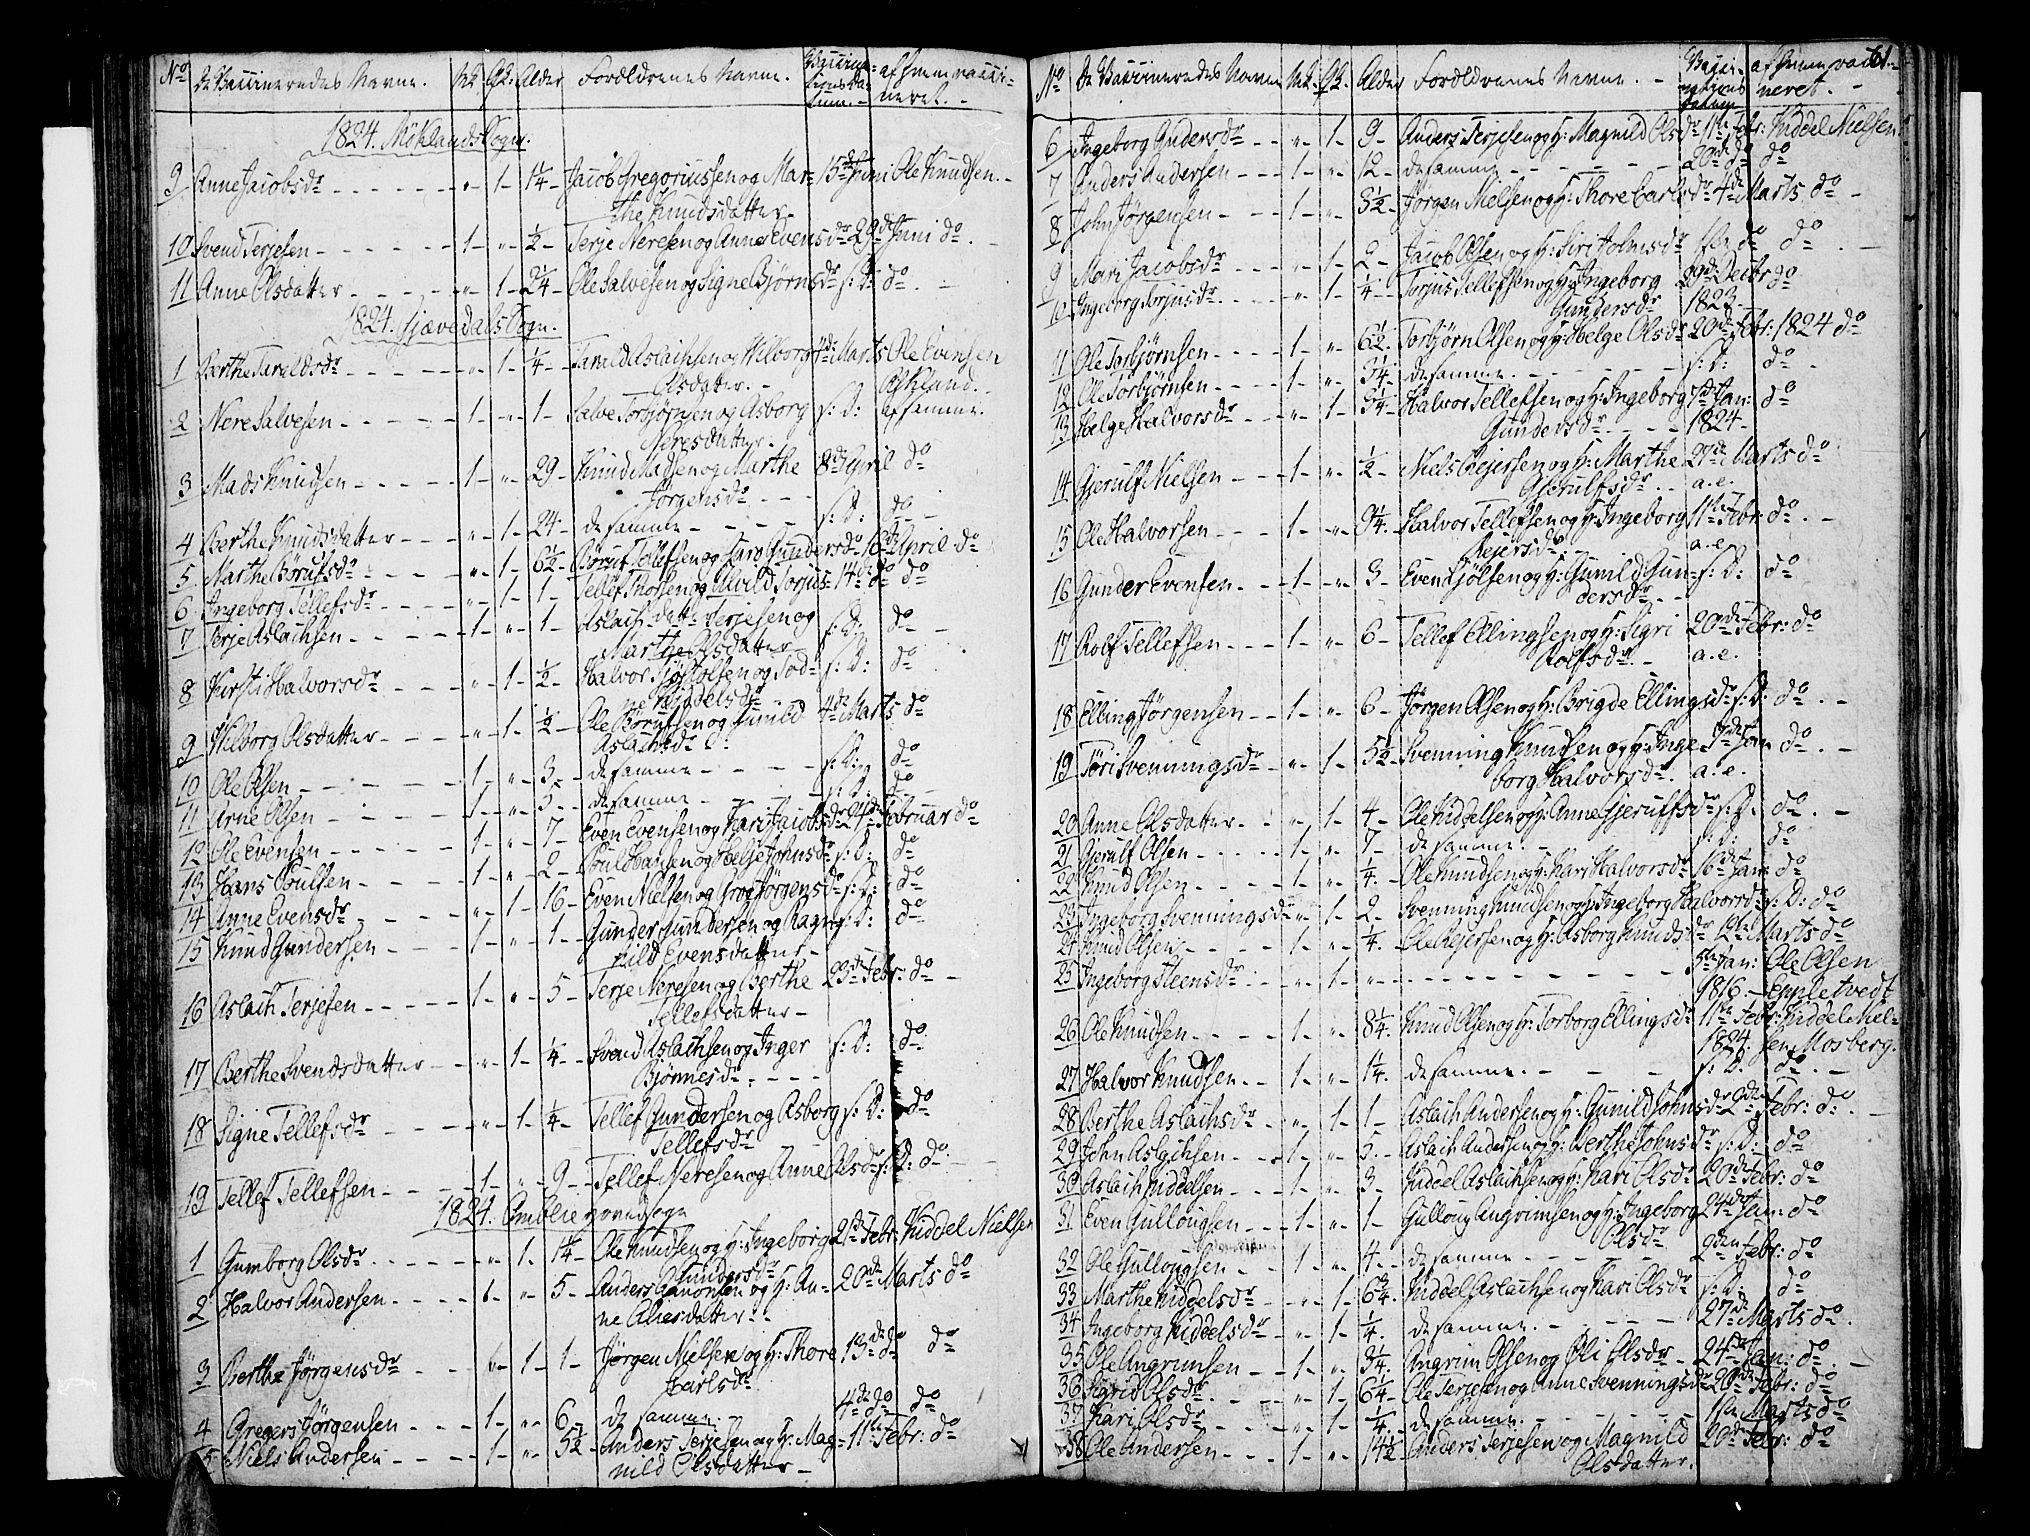 No De Vaccineredes Navne. Mk. Qk. Alder Forældrenes Navne. Vaccinationsdatum. af hvem vaccineret.
1824. Möklands Sogn.
9 Anne Jacobsdr - - - „ 1 1¼ Jacob Gregoriussen og Mar- 15de Juni Ole Knudsen.
the Knudsdatter.
10 Svend Terjesen - - - 1 „ ½ Terje Neresen og Anne Evensdr 29de Juni do.
11 Anne Olsdatter - - - „ 1 2¼ Ole Salvesen og Signe Björnsdr s: D: do.
1824. Gjævedals Sogn.
1 Berthe Taraldsdr - - - „ 1 ¼ Tarald Aslachsen og Wilborg 4de Marts Ole Evensen
Olsdatter. Askland.
2 Nere Salvesen - - - 1 „ 1 Salve Torbjörnsen og Asborg s: D: af samme.
Neresdatter.
3 Mads Knudsen - - - 1 „ 29 Knud Madsen og Marthe 8de April do
Jörgensdr
4 Berthe Knudsdatter - - - „ 1 24 de samme - - - s: D: do
5 Marthe Börufsdr - - - „ 1 6½ Böruf Tellefsen og Sundersdr 16de April do
6 Ingeborg Tellefsdr - - - „ 1 1 Tellef Tholsen og Alvild Torjus- 14de do do
7 Terje Aslachsen - - - 1 „ 1 Aslach datter Terjesen og s: D: do
Marthe Olsdatter
8 Kirsti Halvorsdr - - - „ 1 ½ Halvor Sjöstolsen og Tod- s: D: do
ne Kiddelsdr
9 Wilborg Olsdatter - - - „ 1 ½ Ole Börufsen og Gunild 4de Marts do
Aslachsdr
10 Ole Olsen - - - 1 „ 3 de samme - - - s: D: do
11 Arne Olsen - - - 1 „ 5 de samme - - - s: D: do
12 Ole Evensen - - - 1 „ 7 Even Evensen og Kari Jacobsdr 24de Februar do
13 Hans Poulsen - - - 1 „ 2 Poul Hansen og Helje Johnsdr s: D: do
14 Anne Evensdr - - - „ 1 16 Even Nielsen og Groe Jörgensdr s: D: do
15 Knud Gundersen - - - 1 „ 1 Gunder Gundersen og Ragn- s: D: do
hild Evensdatter
16 Aslach Terjesen - - - 1 „ 5 Terje Neresen og Berthe 23de Febr: do
Tellefsdatter
17 Berthe Svendsdatter - - „ 1 ¼ Svend Aslachsen og Inger s: D: do
Björnesdr
18 Signe Tellefsdr - - - „ 1 ¼ Tellef Gundersen og Asborg s: D: do
Tellefsdr
19 Tellef Tellefsen - - - 1 „ 9 Tellef Neresen og Anne Olsdr s: D: do
1824. Omblie Hovedsogn
1 Gumborg Olsdr - - - „ 1 1¼ Ole Knudsen og H: Ingeborg 21de Febr: Kiddel Nielsen
Gundersdr
2 Halvor Andersen - - - 1 „ 5 Anders Aanonsen og H: An- 20de Marts do
ne Aliesdatter
3 Berthe Jörgensdr - - - „ 1 1 Jörgen Nielsen og H: Thore 13de do do
Karlsdr
4 Gregers Jörgensen - - - 1 „ 6 de samme 4de do do
5 Niels Andersen - - - 1 „ 5½ Anders Terjesen og H: Mag- 11te Febr: do
nild Olsdatter
61
No De Vaccineredes Navne Mk. Qk. Alder Forældrenes Navne. Vaccinationsdatum af hvem vaccineret.
6 Ingeborg Andersdr - - „ 1 9 Anders Terjesen og H: Magnild Olsdr 11te Febr: Kiddel Nielsen
7 Anders Andersen - - 1 „ 12 de samme - - - 20de do do
8 John Jörgensen - - 1 „ 3½ Jörgen Nielsen og H: Thore Carlsdr 4de Marts do
9 Mari Jacobsdr - - „ 1 2 Jacob Olsen og H: Siri Johnsdr 1ste do do
10 Ingeborg Torjusdr - - „ 1 ¼ Torjus Tellefsen og H: Ingeborg 29de Decbr do
Gundersdr 1823.
11 Ole Torbjörnsen - - 1 „ 6½ Torbjörn Olsen og H: Helge Olsdr 20de Febr: 1824 do
12 Ole Torbjörnsen - - 1 „ 3¼ de samme - - - s: D: do
13 Helge Halvorsdr - - „ 1 3¼ Halvor Tellefsen og H: Ingeborg Jan: do
Gundersdr 1824
14 Gjerulf Nielsen - - 1 „ ½ Niels Rejersen og H: Marthe 27de Marts do
Gjerulfsdr a. e.
15 Ole Halvorsen - - 1 „ 9¼ Halvor Tellefsen og H: Ingeborg 11te Febr: do
Rejersdr a. e.
16 Gunder Evensen - - 1 „ 3 Even Kjölsen og H: Gunild Gun- s: D: do
dersdr
17 Rolf Tellefsen - - 1 „ 6 Tellef Ellingsen og H: Sigri 20de Febr: do
Rolfsdr a. e.
18 Elling Jörgensen - - 1 „ 6 Jörgen Olsen og H: Brigde Ellingsdr s: D: do
19 Töri Svenningsdr - - „ 1 5½ Svenning Knudsen og H: Inge- 7de Jan: do
borg Halvorsdr a. e.
20 Anne Olsdatter - - „ 1 4 Ole Kiddelsen og H: Anne Gjerulfsdr s: D: do
21 Gjerulf Olsen - - 1 „ 7 de samme - s: D: do
22 Knud Olsen - - 1 „ ¼ Ole Knudsen og H: Kari Halvorsdr 16de Jan: do
23 Ingeborg Svenningsdr „ 1 2 Svenning Knudsen og H: Ingeborg Halvorsdr s: D: do
24 Knud Olsen - - 1 „ ¼ Ole Rejersen og H: Asborg Knudsdr 19de Marts do
25 Ingeborg Steensdr - - „ 1 „ - - - 5te Jan: Ole Olsen
1816. Eppletvedt
26 Ole Knudsen - - 1 „ 8¼ Knud Olsen og H: Torborg Ellingsdr 11te Febr: Kiddel Niel-
1824. sen Mosberg.
27 Halvor Knudsen - - 1 „ 1¼ de samme - - s: D. do
28 Berthe Aslachsdr - - „ 1 1 Aslach Andersen og H: Gunild Johnsdr 2den Febr: do
29 John Aslachsen - - 1 „ 5 Aslach Andersen og H: Berthe Johnsdr s: D: do
30 Aslach Kiddelsen - - 1 „ 3 Kiddel Aslachsen og H: Kari Olsdr 20de Febr: do
31 Even Gullougsen - - 1 „ 1 Gulloug Angrimsen og H: Ingeborg 24de Jan: do
Olsdr
32 Ole Gullougsen - - 1 „ 4 de samme - - 2den Febr: do
33 Marthe Kiddelsdr - - „ 1 6¾ Kiddel Aslachsen og Kari Olsdr s: D: do
34 Ingeborg Kiddelsdr - - „ 1 ¼ de samme - - 27de Marts do
35 Ole Angrimsen - - 1 „ 3¼ Angrim Olsen og Oli Olsdr 24de Jan: do
36 Sigrid Olsdr - - „ 1 6¼ Ole Terjesen og Anne Svenningsdr 20de Febr: do
37 Kari Olsdr - - „ 1 ¼ de samme - - 11te Marts do
38 Ole Andersen - - 1 „ 14½ Anders Terjesen og Magnild 20de Febr: do
Olsdatter.